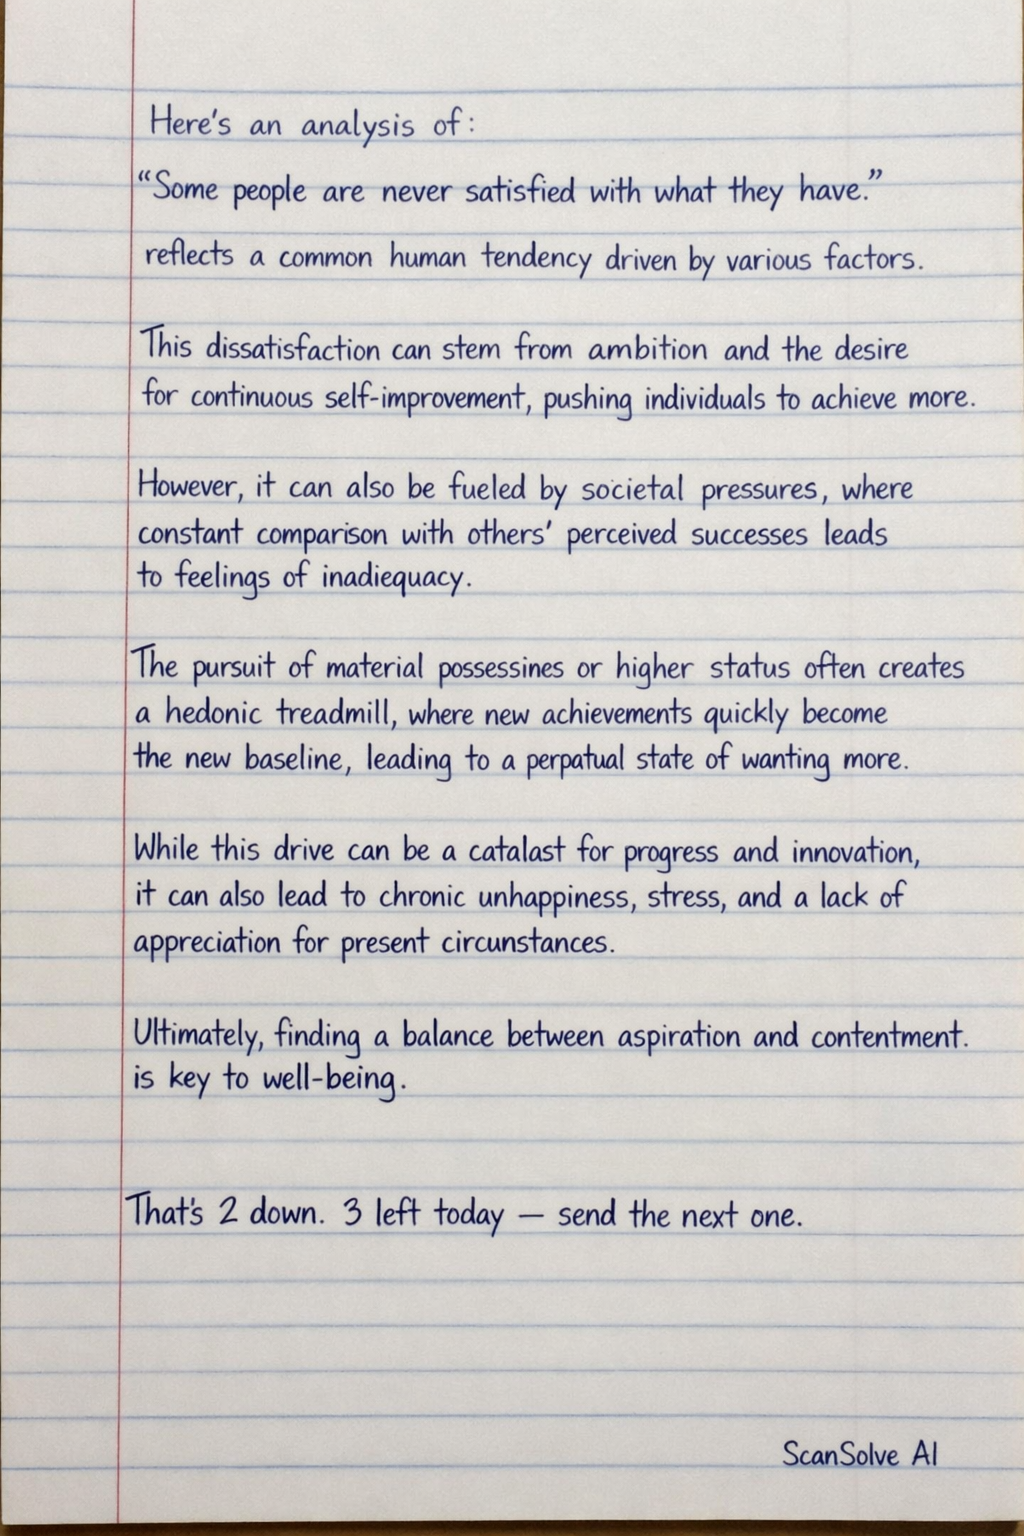 Here's an analysis of:
“Some people are never satisfied with what they have.”
reflects a common human tendency driven by various factors.
This dissatisfaction can stem from ambition and the desire
for continuous self-improvement, pushing individuals to achieve more.
However, it can also be fueled by societal pressures, where
constant comparison with others' perceived successes leads
to feelings of inadiequacy.
The pursuit of material possessines or higher status often creates
a hedonic treadmill, where new achievements quickly become
the new baseline, leading to a perpatual state of wanting more.
While this drive can be a catalast for progress and innovation,
it can also lead to chronic unhappiness, stress, and a lack of
appreciation for present circunstances.
Ultimately, finding a balance between aspiration and contentment.
is key to well-being.
That's 2 down. 3 left today — send the next one.
ScanSolve AI